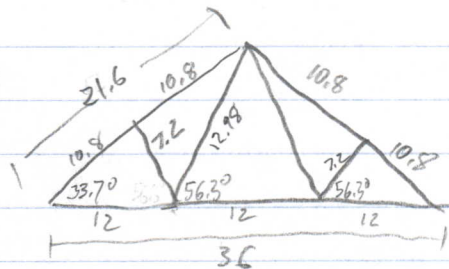 21.6
10.8
10.8
10.8
7.2
12.98
7.2
10.8
33.7°
56.3°
56.3°
12
12
12
36